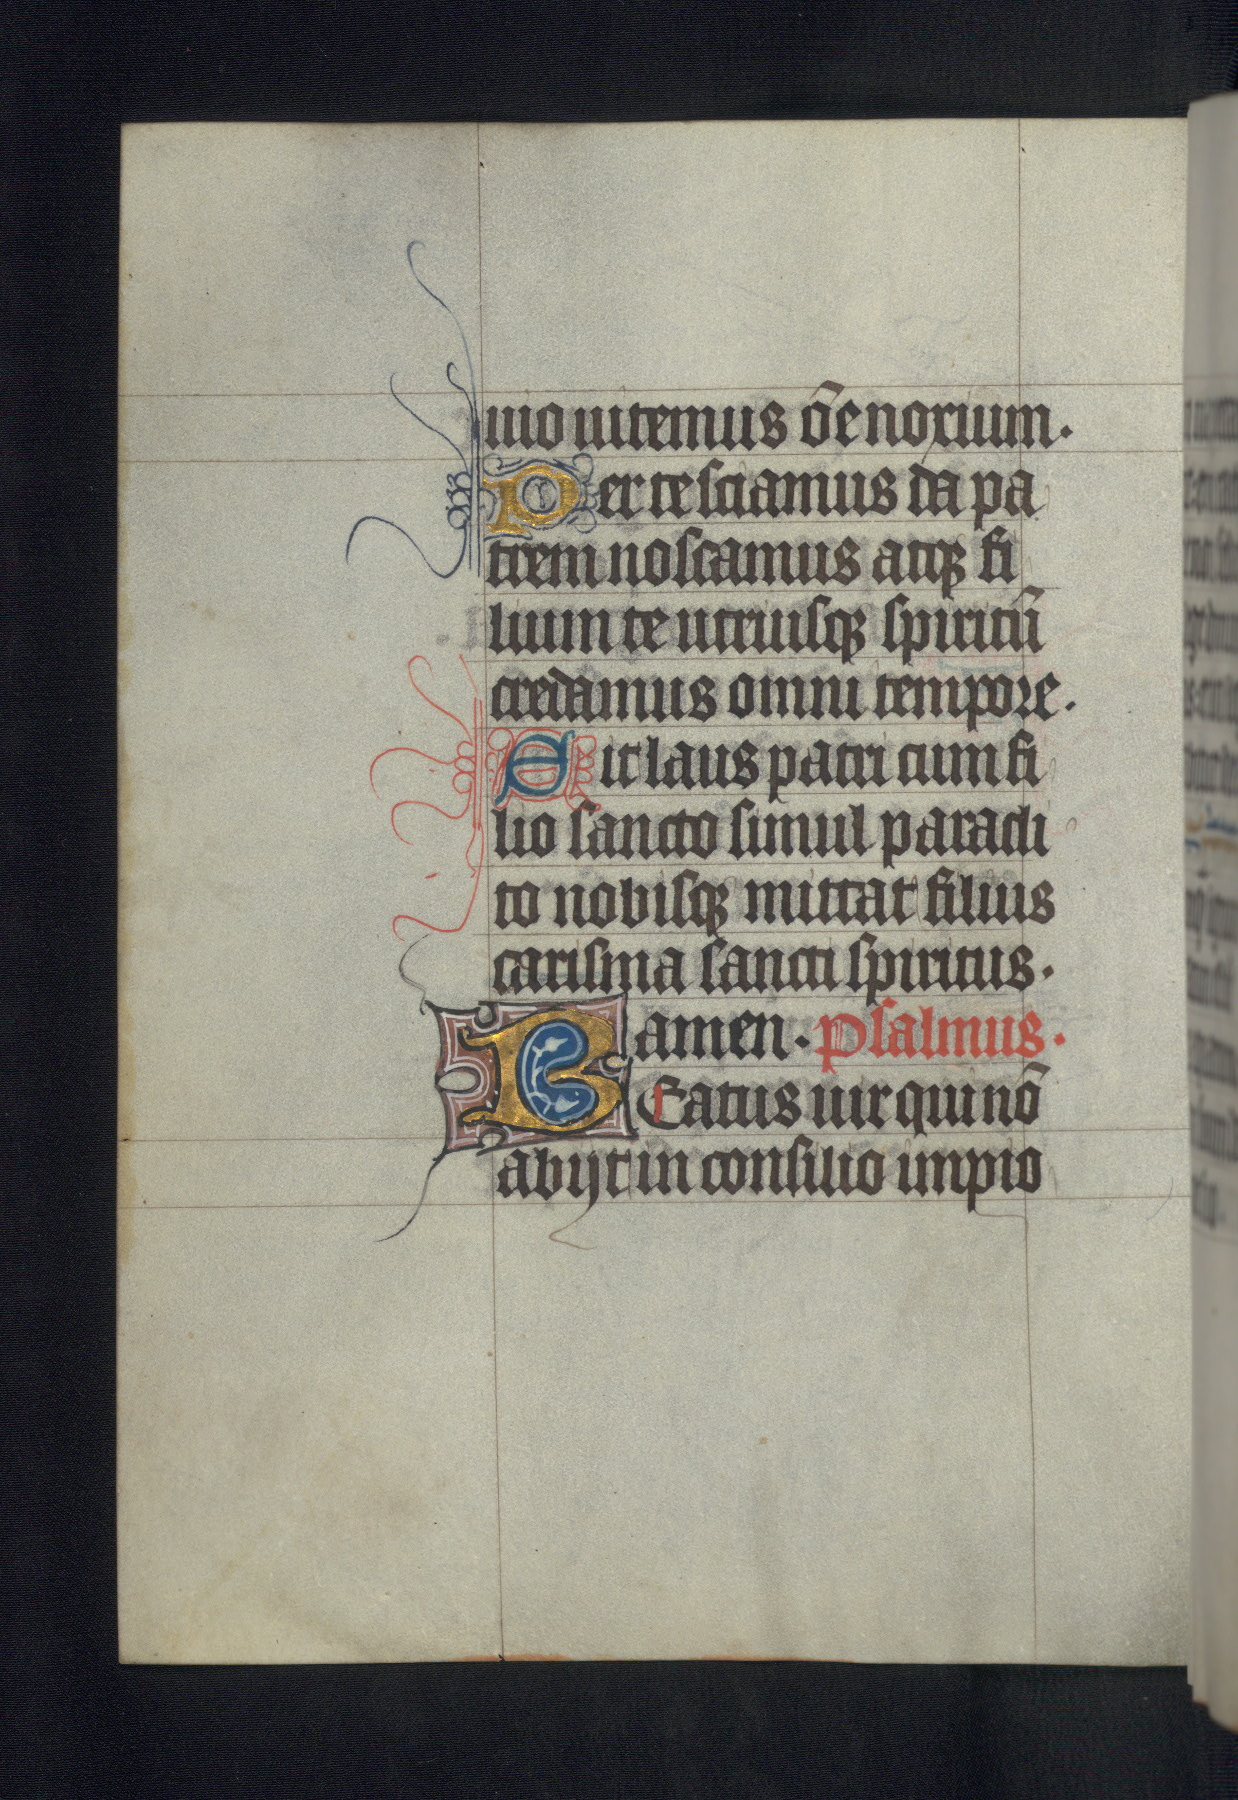 uio uitemus õe noxium.
Per te sciamus da pa
trem noscamus atqꝫ fi
lium te utriusqꝫ spiritũ
credamus omni tempore.
Sit laus patri cum fi
lio sancto simul paracli
to nobisqꝫ mittat filius
carisma sancti spiritus.
amen. psalmus.
BEatus uir qui nõ
abijt in consilio impio